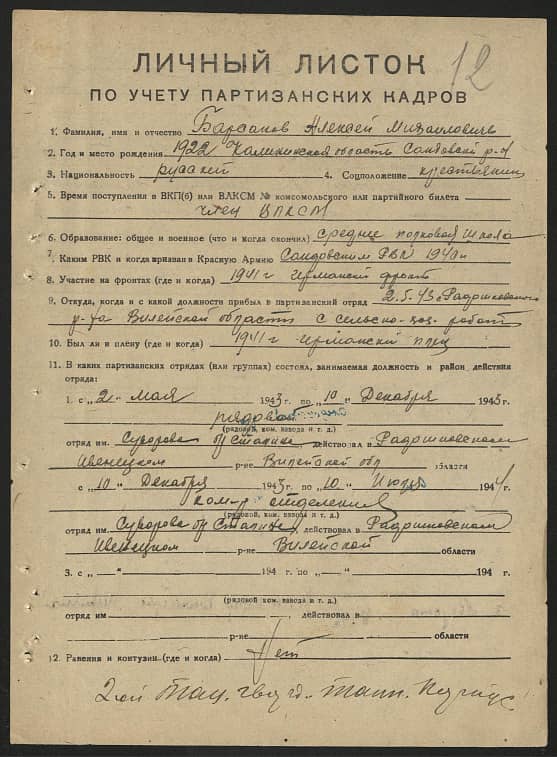 12
ЛИЧНЫЙ ЛИСТОК
ПО УЧЕТУ ПАРТИЗАНСКИХ КАДРОВ
1. Фамилия, имя и отчество Барсанов Алексей Михайлович
2. Год и место рождения 1922 Калининская область Сандовский р-н
3. Национальность русский 4. Соцположение крестьянин
5. Время поступления в ВКП(б) или ВЛКСМ № комсомольского или партийного билета
член ВЛКСМ
6. Образование: общее и военное (что и когда окончил) среднее полковая школа
7. Каким РВК и когда призван в Красную Армию Сандовским РВК 1940 г
8. Участие на фронтах (где и когда) 1941 г фронт
9. Откуда, когда и с какой должности прибыл в партизанский отряд 2.5.43 с Радошковского
р-на Вилейской области с сельско-хоз. работ
10. Был ли в плену (где и когда) 1941 г плен
11. В каких партизанских отрядах (или группах) состоял, занимаемая должность и район действия
отряда:
1. с „2“ мая 1943 г. по „10“ Декабря 1943 г.
рядовой
(рядовой, ком. взвода и т. д.)
отряд им. Суворова бр Сталина действовал в Радошковском
Ивенецком р-не Вилейской обл области
с „10“ Декабря 1943 г. по „10“ Июля 1944 г.
ком-р отделения
(рядовой, ком. взвода и т. д.)
отряд им. Суворова бр Сталина, действовал в Радошковском
Ивенецком р-не Вилейской области
3. с „ “ 194 г. по „ “ 194 г.
(рядовой ком. взвода и т. д.)
отряд им , действовал в
р-не области
12. Ранения и контузии (где и когда) Нет
2-ой Тац. гвард. танк. Корпус